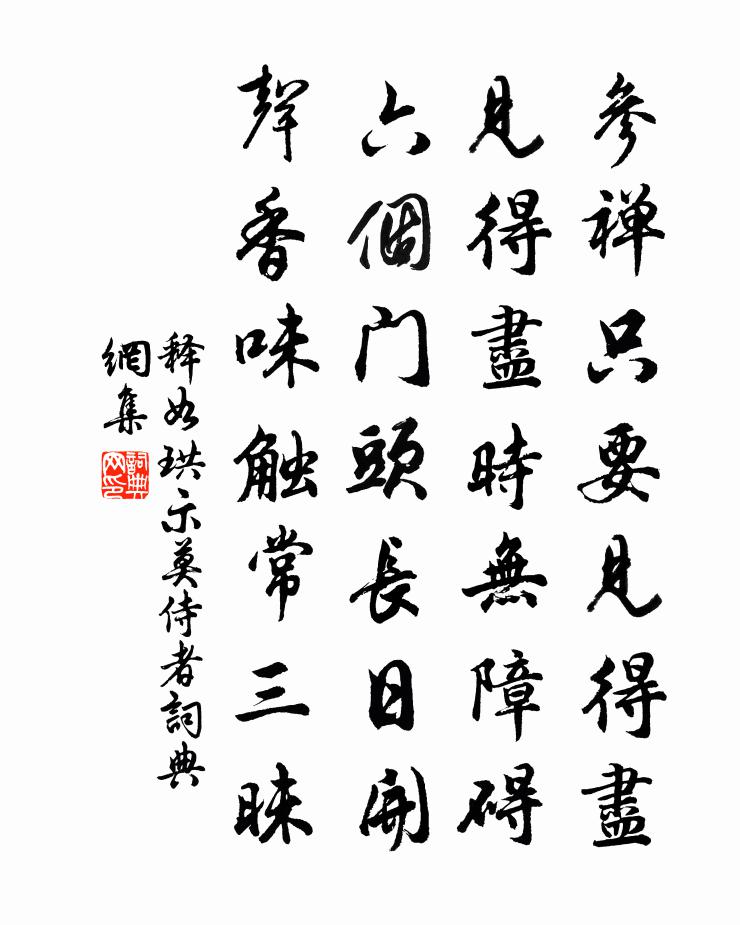 參禅只要見得盡
見得盡時無障碍
六個门頭長日開
聲香味触常三昧
释如珙示莫侍者詞典
網集
詞典
网印